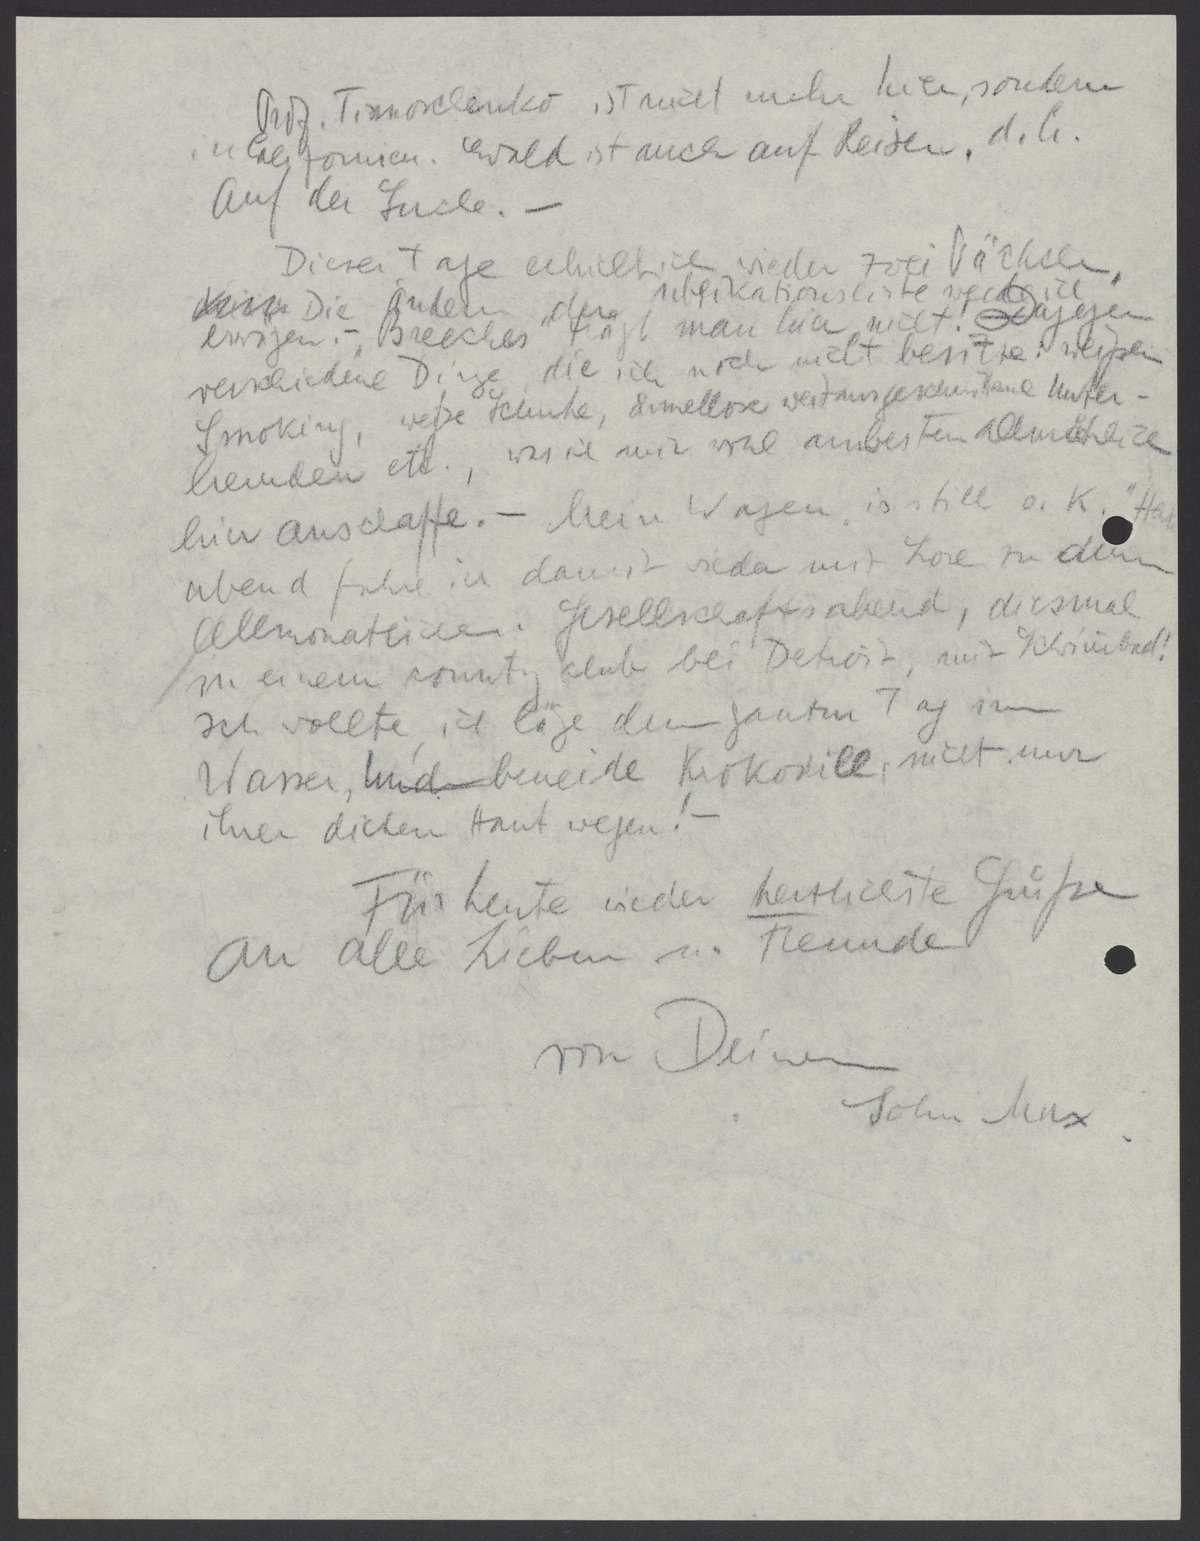 Prof. Timoschenko ist nicht mehr hier, sondern
in Californien. Ewald ist auch auf Reisen, d.h.
Auf der Suche. —
Dieser Tage erhielt ich wieder zwei Päckchen.
Die Ändern der Publikationsliste werde ich
erwägen. — "Breeches" trägt man hier nicht! Dagegen
verschiedene Dinge, die ich noch nicht besitze: weißen
Smoking, weiße Schuhe, ärmellose weitausgeschnittene Unter-
hemden etc., was ich mir wohl am besten allmählich
hier anschaffe. — Mein Wagen "is still o.K." Heut
abend fahre ich damit wieder mit Lore zu dem
Allmonatlichen Gesellschaftsabend, diesmal
in einem county club bei Detroit, mit Schwimbad!
Ich wollte, ich läge den ganzen Tag im
Wasser, und beneide Krokodile, nicht nur
ihrer dicken Haut wegen! —
Für heute wieder herzlichste Grüße
an alle Lieben u. Freunde
von Deinem
Sohn Max.